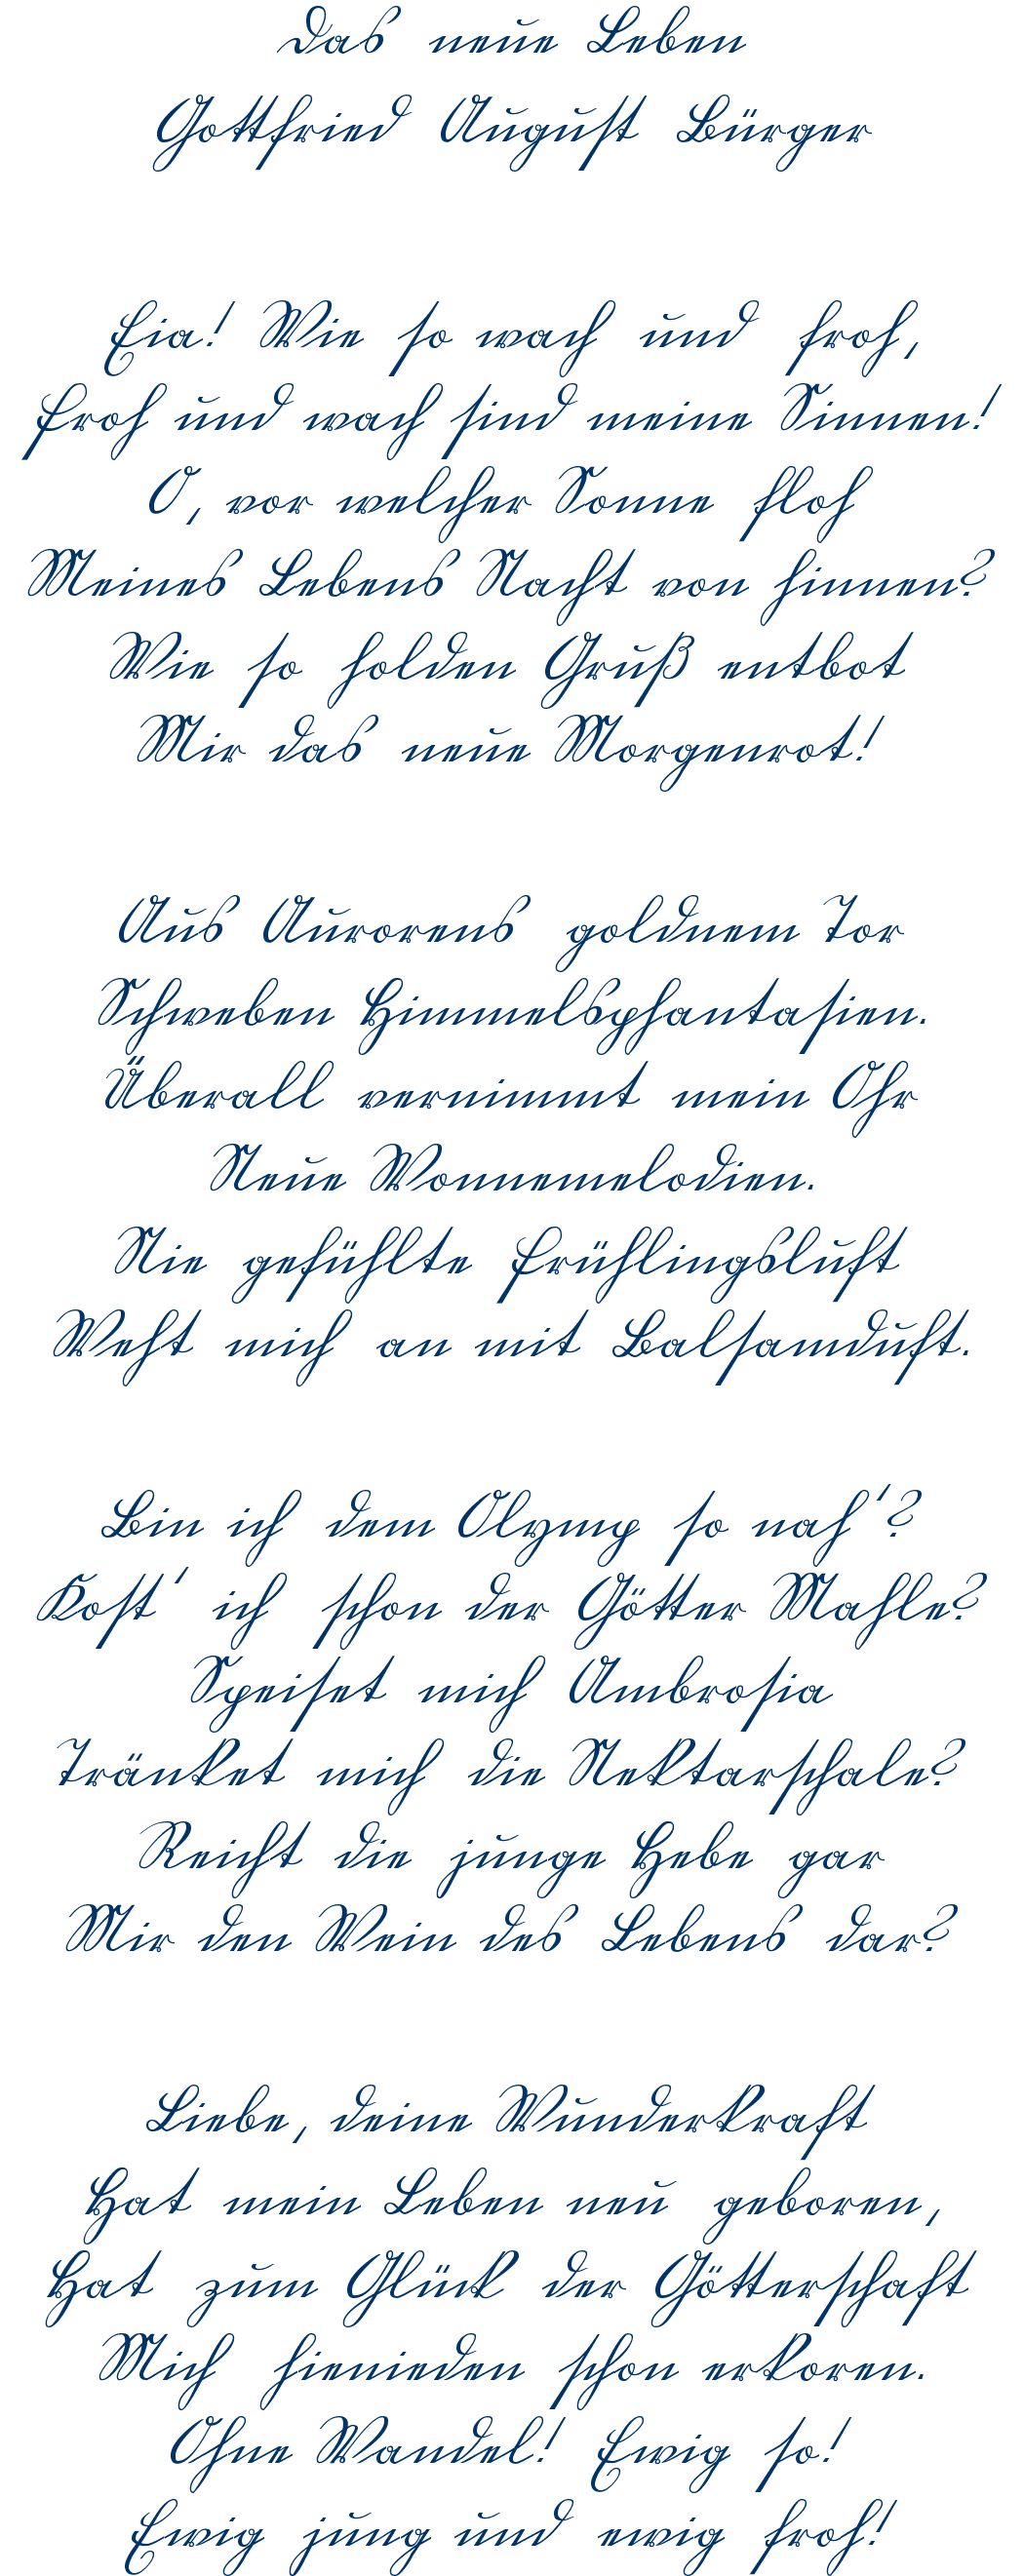 Das neue Leben
Gottfried August Bürger
Eia! Wie so wach und froh,
Froh und wach sind meine Sinnen!
O, vor welcher Sonne floh
Meines Lebens Nacht von hinnen?
Wie so holden Gruß entbot
Mir das neue Morgenrot!
Aus Aurorens goldnem Tor
Schweben Himmelsphantasien.
Überall vernimmt mein Ohr
Neue Wonnemelodien.
Nie gefühlte Frühlingsluft
Weht mich an mit Balsamduft.
Bin ich dem Olymp so nah'?
Kost' ich schon der Götter Mahle?
Speiset mich Ambrosia
Tränket mich die Nektarschale?
Reicht die junge Hebe gar
Mir den Wein des Lebens dar?
Liebe, deine Wunderkraft
Hat mein Leben neu geboren,
Hat zum Glück der Götterschaft
Mich hienieden schon erkoren.
Ohne Wandel! Ewig so!
Ewig jung und ewig froh!